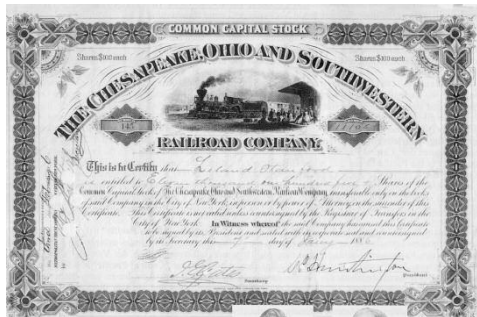 COMMON CAPITAL STOCK
Shares $100 each Shares $100 each
THE CHESAPEAKE, OHIO AND SOUTHWESTERN
RAILROAD COMPANY.
This is to Certify that Leland Stanford
is entitled to Eleven thousand one hundred five Shares of the
Common Capital Stock of The Chesapeake, Ohio and Southwestern Railroad Company, transferable only on the books
of said Company in the City of New York, in person or by power of Attorney, on the surrender of this
Certificate. This Certificate is not valid unless countersigned by the Registrar of Transfers in the
City of New York. In Witness whereof the said Company has caused this Certificate
to be signed by its President and sealed with its corporate seal and countersigned
by its Secretary this day of 188
Secretary President